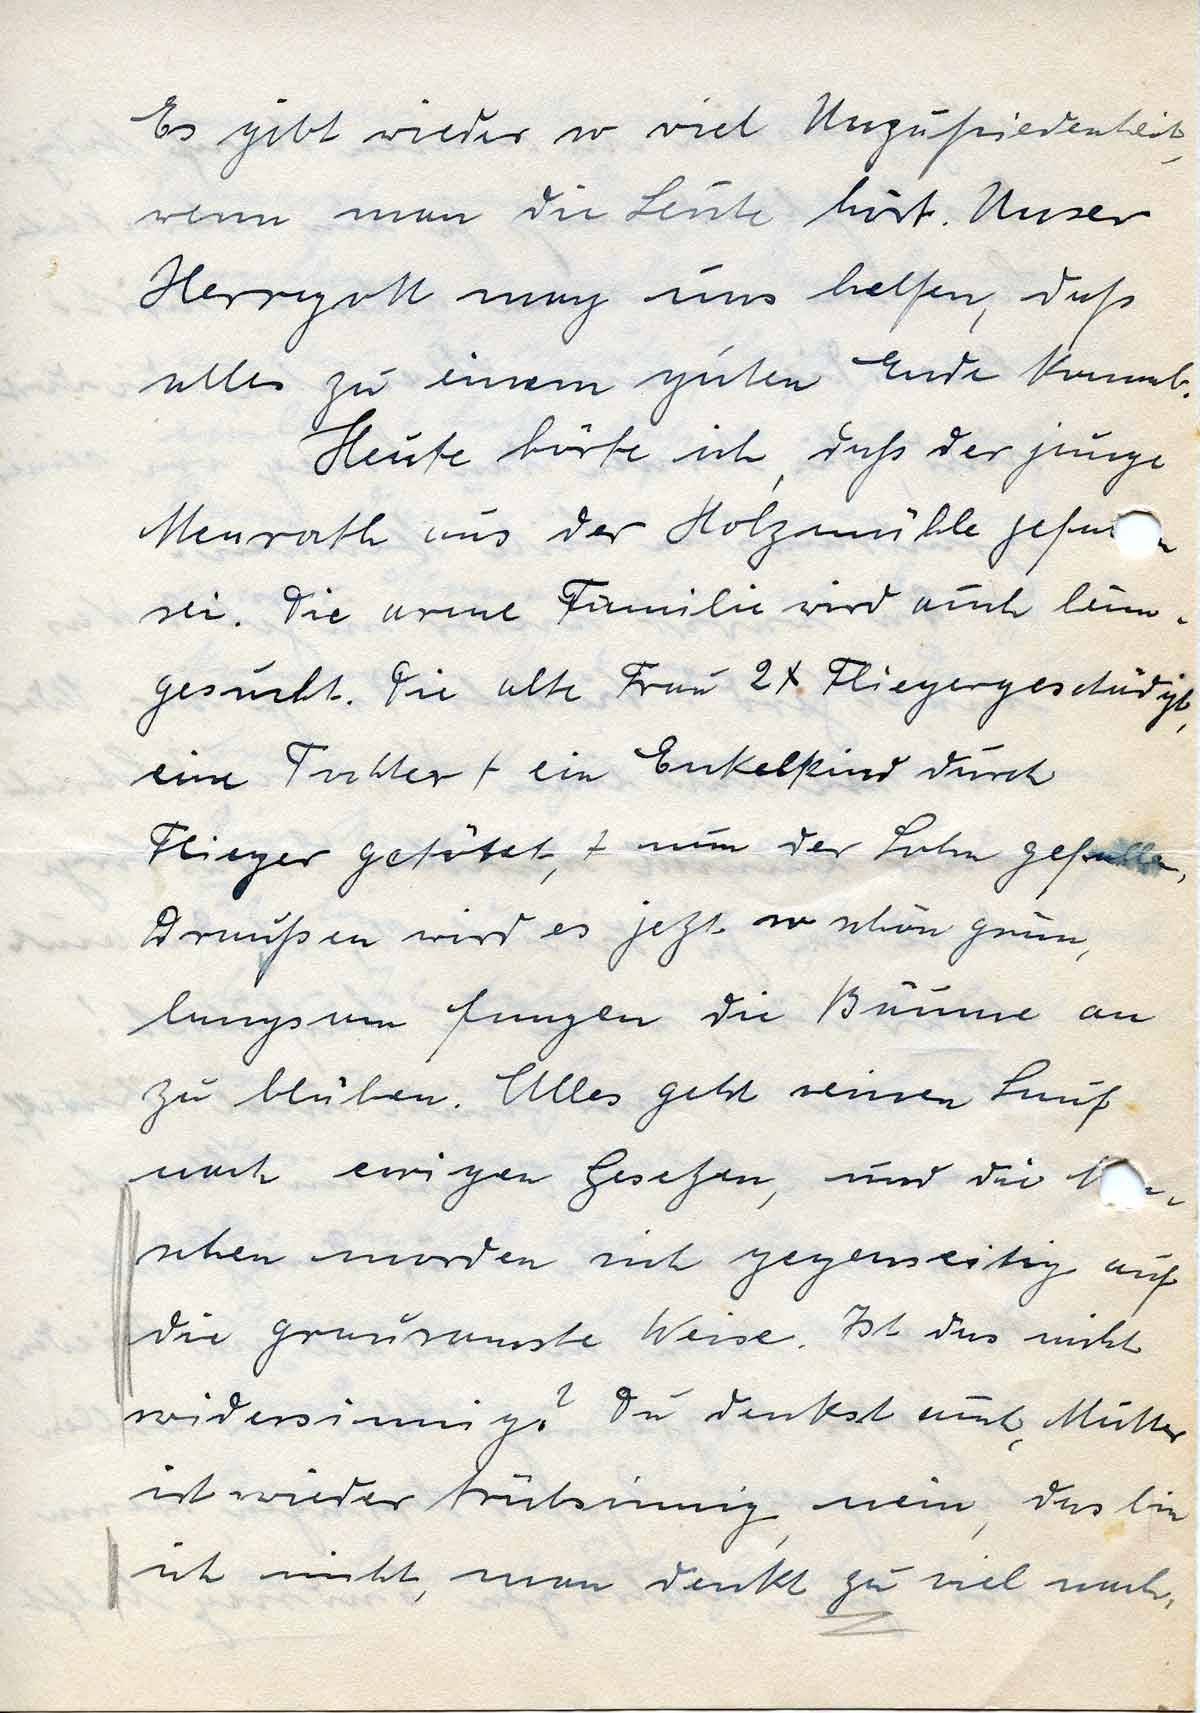 Es gibt wieder so viel Unzufriedenheit,
wenn man die Leute hört. Unser
Herrgott mag uns helfen, daß
alles zu einem guten Ende kommt.
Heute hörte ich, daß der junge
Menrath aus der Holzmühle
sei. Die arme Familie wird auch heim-
gesucht. Die alte Frau 2x Fliegergeschädigt,
eine Tochter + ein Enkelkind durch
Flieger getötet, + nun der Sohn gefallen.
Draußen wird es jezt so schön grün,
langsam fangen die Bäume an
zu blühen. Alles geht seinen Lauf
nach ewigen Gesetzen, und die
schen morden sich gegenseitig auf
die grausamste Weise. Ist das nicht
widersinnig? Du denkst auch, Mutter
ist wieder trübsinnig, nein, das bin
ich nicht, man denkt zu viel nach.